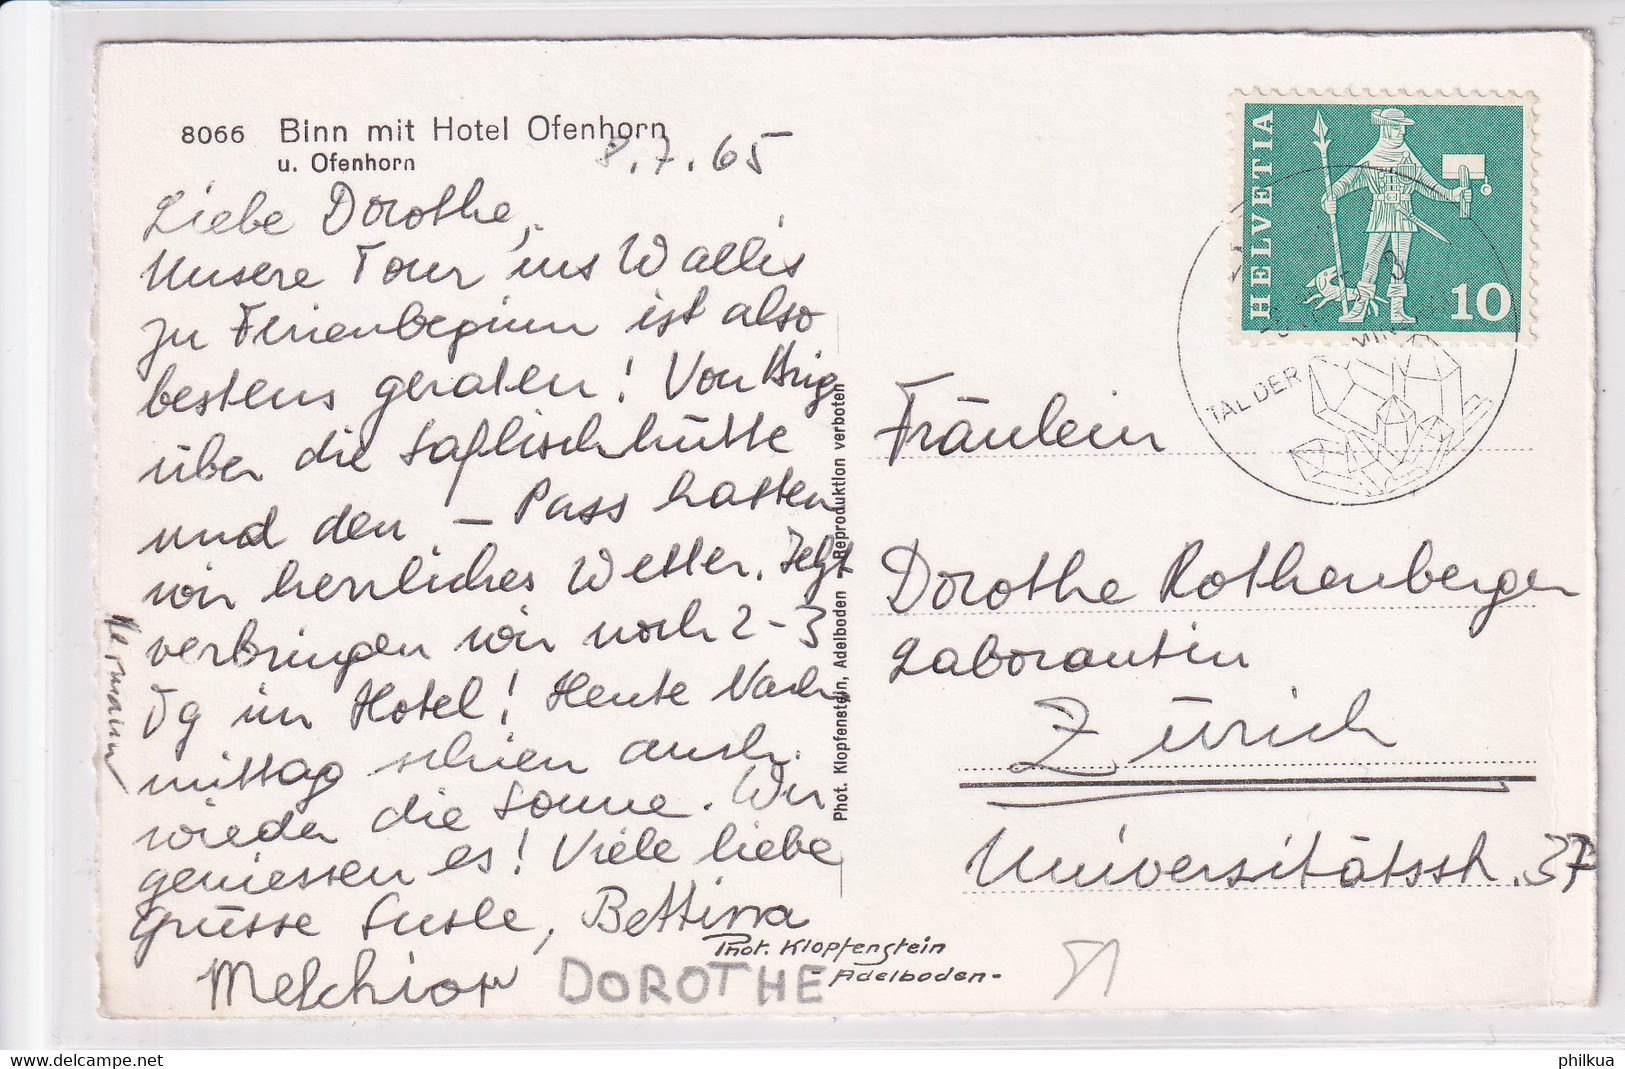 8066 Binn mit Hotel Ofenhorn
u. Ofenhorn
8.7.65
Liebe Dorothe,
Unsere Tour ins Wallis
zu Ferienbeginn ist also
bestens geraten! Von Brig
über die Saflischhütte
und den – Pass hatten
wir herrliches Wetter. Jetzt
verbringen wir noch 2-3
Tg im Hotel! Heute Nach
mittag schien auch
wieder die Sonne. Wir
geniessen es! Viele liebe
Grüsse Susle, Bettina
Melchior DOROTHE
Hermann
Phot. Klopfenstein, Adelboden – Reproduktion verboten
Phot. Klopfenstein
- Adelboden -
HELVETIA
10
TAL DER
Fräulein
Dorothe Rothenberger
Laborantin
Zürich
Universitätsstr. 37
philkua